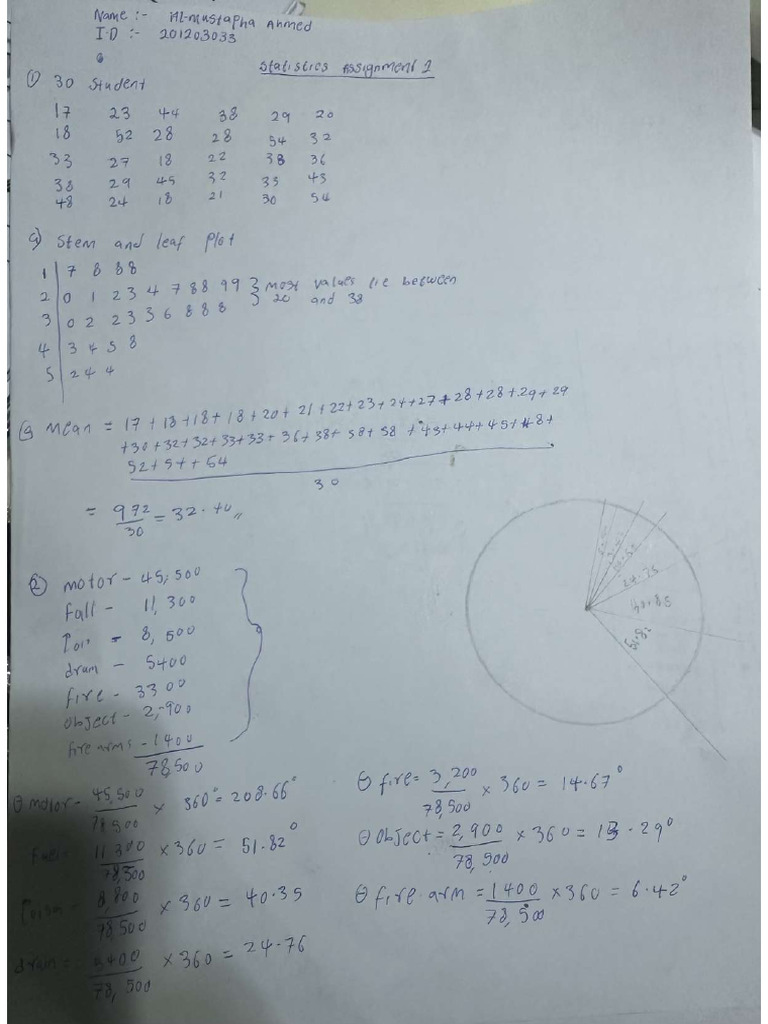 Name :- Al-mustapha Ahmed
I.D :- 201203033
Statistics Assignment 1
① 30 Student
17 23 44 38 29 20
18 52 28 28 54 32
33 27 18 22 38 36
38 29 45 32 33 43
48 24 18 21 30 54
a) Stem and leaf plot
1 | 7 8 8 8
2 | 0 1 2 3 4 7 8 8 9 9 } most values lie between
3 | 0 2 2 3 3 6 8 8 8 } 20 and 38
4 | 3 4 5 8
5 | 2 4 4
Mean = 17 + 18 + 18 + 18 + 20 + 21 + 22 + 23 + 24 + 27 + 28 + 28 + 29 + 29
+ 30 + 32 + 32 + 33 + 33 + 36 + 38 + 38 + 38 + 43 + 44 + 45 + 48 +
52 + 54 + 54
30
= 972/30 = 32.40,,
② motor - 45,500
fall - 11,300
Pois = 8,500
dran - 5400
fire - 3300
object - 2,900
fire arms - 1400
78,500
24.75
40.85
51.82
θ motor = 45,500/78,500 × 360° = 208.66°
fall = 11,300/78,500 × 360 = 51.82°
Poison = 8,800/78,500 × 360 = 40.35
dran = 5400/78,500 × 360 = 24.76
θ fire = 3,200/78,500 × 360 = 14.67°
θ Object = 2,900/78,500 × 360 = 13.29°
θ fire arm = 1400/78,500 × 360 = 6.42°